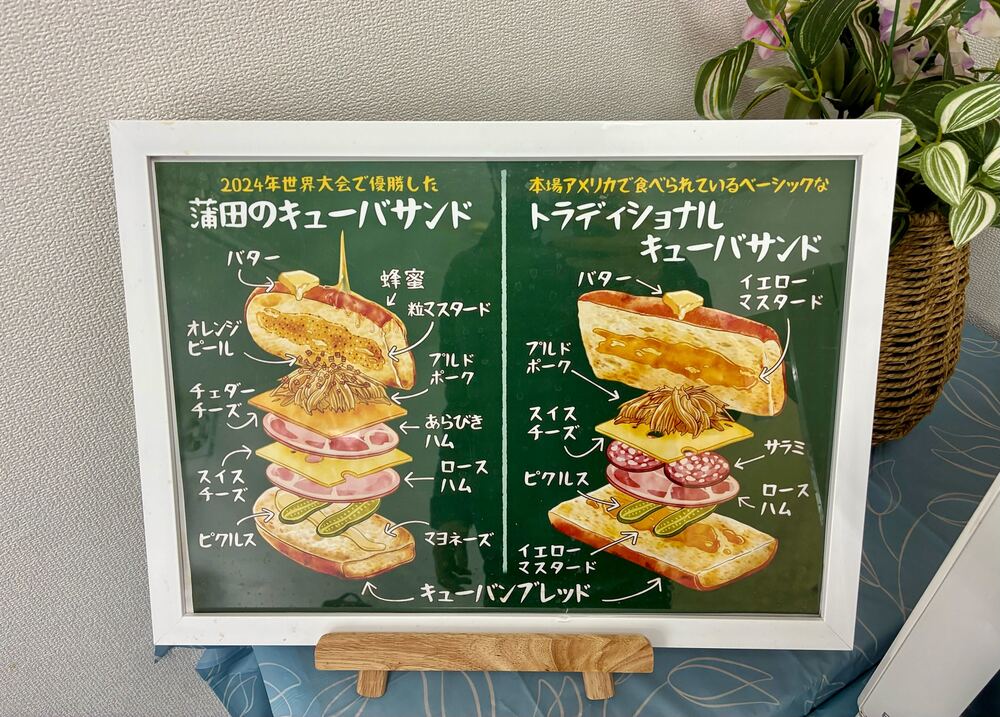 2024年世界大会で優勝した
蒲田のキューバサンド
バター
蜂蜜
粒マスタード
オレンジ
ピール
プルド
ポーク
チェダー
チーズ
あらびき
ハム
スイス
チーズ
ロース
ハム
ピクルス
マヨネーズ
本場アメリカで食べられているベーシックな
トラディショナル
キューバサンド
バター
イエロー
マスタード
プルド
ポーク
スイス
チーズ
サラミ
ピクルス
ロース
ハム
イエロー
マスタード
キューバンブレッド